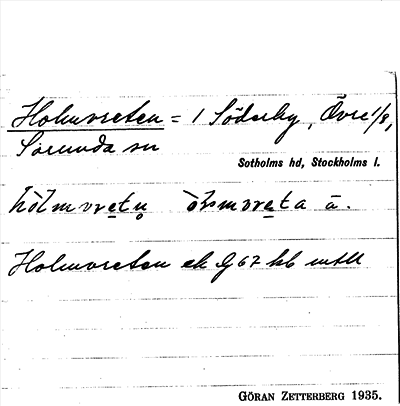 Holmvreten = 1 Söderby, Övre 1/8,
Sorunda sn
Sotholms hd, Stockholms l.
hòlmvretn̥ ò̱ksmvreta ä.
Holmvreten ek bj 67 kb mtll
GÖRAN ZETTERBERG 1935.